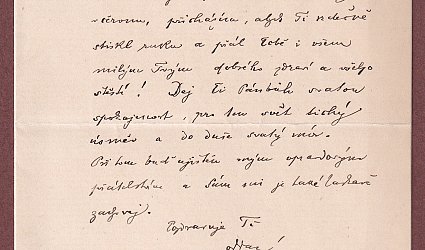 přicházím, abych Ti srdečně
stiskl ruku a přál Tobě i všem
milým Tvým dobrého zdraví a všeho
štěstí! Dej Ti Pánbůh svatou
spokojenost, pro ten svět tichý
úsměv a do duše svatý mír.
Při tom buď ujištěn mým opravdovým
přátelstvím a Sám mi je také laskavě
zachovej.
Pozdravuje Ti